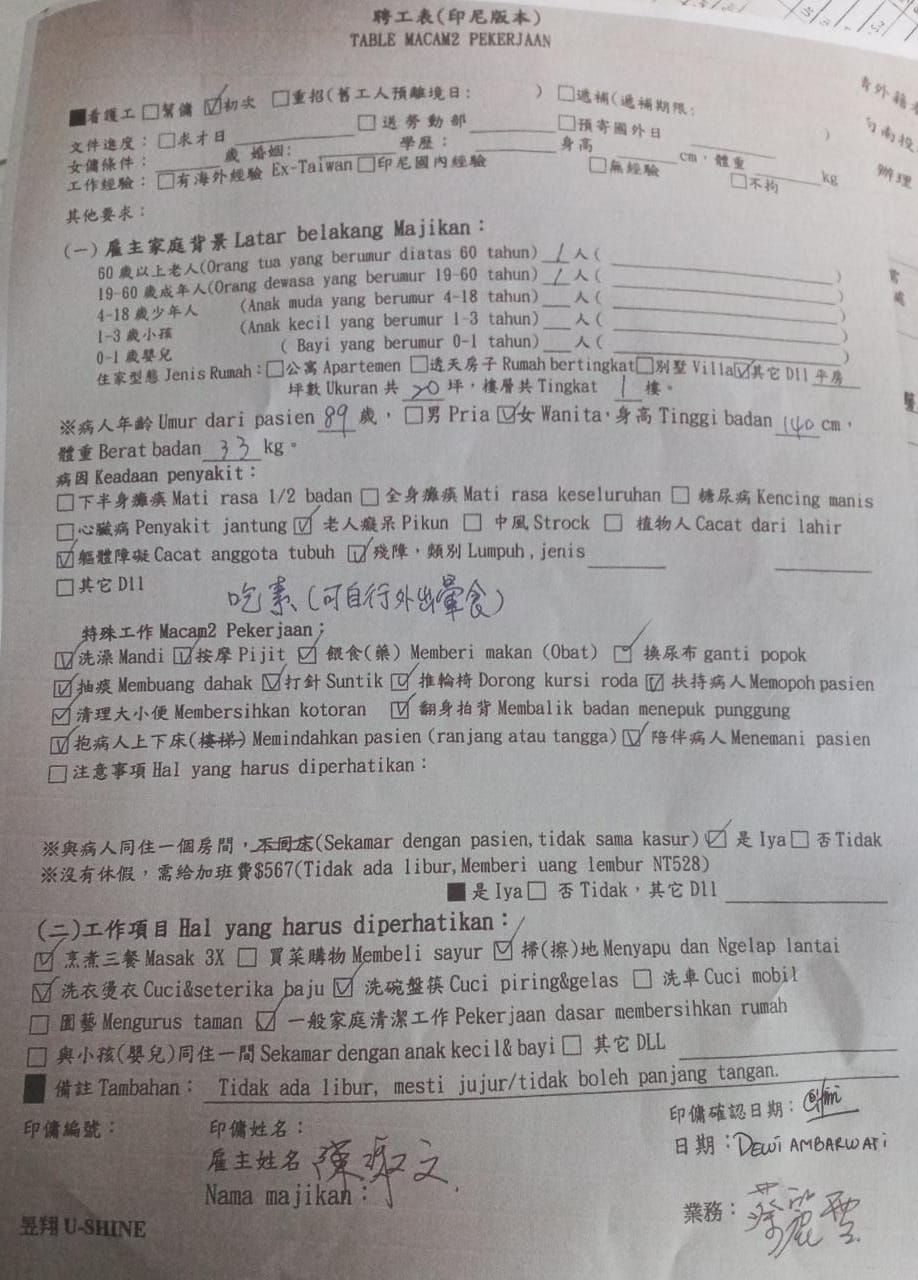 聘工表(印尼版本)
TABLE MACAM2 PEKERJAAN
■看護工 □幫傭 ☑初次 □重招(舊工人預離境日: ) □遞補(遞補期限: )
文件進度:□求才日 □送勞動部 □預寄國外日
女傭條件: 歲 婚姻: 學歷: 身高 cm,體重 kg
工作經驗:□有海外經驗 Ex-Taiwan □印尼國內經驗 □無經驗 □不拘
其他要求:
(一)雇主家庭背景 Latar belakang Majikan:
60歲以上老人(Orang tua yang berumur diatas 60 tahun) 1 人( )
19-60歲成年人(Orang dewasa yang berumur 19-60 tahun) 1 人( )
4-18歲少年人 (Anak muda yang berumur 4-18 tahun) 人( )
1-3歲小孩 (Anak kecil yang berumur 1-3 tahun) 人( )
0-1歲嬰兒 ( Bayi yang berumur 0-1 tahun) 人( )
住家型態 Jenis Rumah:□公寓 Apartemen □透天房子 Rumah bertingkat □別墅 Villa ☑其它 Dll 平房
坪數 Ukuran 共 20 坪,樓層共 Tingkat 1 樓。
※病人年齡 Umur dari pasien 89 歲,□男 Pria ☑女 Wanita,身高 Tinggi badan 140 cm,
體重 Berat badan 33 kg。
病因 Keadaan penyakit:
□下半身癱瘓 Mati rasa 1/2 badan □全身癱瘓 Mati rasa keseluruhan □糖尿病 Kencing manis
□心臟病 Penyakit jantung ☑老人癡呆 Pikun □中風 Strock □植物人 Cacat dari lahir
☑軀體障礙 Cacat anggota tubuh ☑殘障,類別 Lumpuh, jenis
□其它 Dll
吃素(可自行外出葷食)
特殊工作 Macam2 Pekerjaan:
☑洗澡 Mandi ☑按摩 Pijit ☑餵食(藥) Memberi makan (Obat) ☑換尿布 ganti popok
☑抽痰 Membuang dahak ☑打針 Suntik ☑推輪椅 Dorong kursi roda ☑扶持病人 Memopoh pasien
☑清理大小便 Membersihkan kotoran ☑翻身拍背 Membalik badan menepuk punggung
☑抱病人上下床(樓梯) Memindahkan pasien (ranjang atau tangga) ☑陪伴病人 Menemani pasien
□注意事項 Hal yang harus diperhatikan:
※與病人同住一個房間,不同床(Sekamar dengan pasien, tidak sama kasur) ☑是 Iya □否 Tidak
※沒有休假,需給加班費$567(Tidak ada libur, Memberi uang lembur NT528)
■是 Iya □否 Tidak,其它 Dll
(二)工作項目 Hal yang harus diperhatikan:
☑烹煮三餐 Masak 3X □買菜購物 Membeli sayur ☑掃(擦)地 Menyapu dan Ngelap lantai
☑洗衣燙衣 Cuci&seterika baju ☑洗碗盤筷 Cuci piring&gelas □洗車 Cuci mobil
□園藝 Mengurus taman ☑一般家庭清潔工作 Pekerjaan dasar membersihkan rumah
□與小孩(嬰兒)同住一間 Sekamar dengan anak kecil& bayi □其它 DLL
■備註 Tambahan: Tidak ada libur, mesti jujur/tidak boleh panjang tangan.
印傭編號: 印傭姓名: 印傭確認日期:
雇主姓名 日期:DEWI AMBARWATI
Nama majikan:
業務:
昱翔 U-SHINE